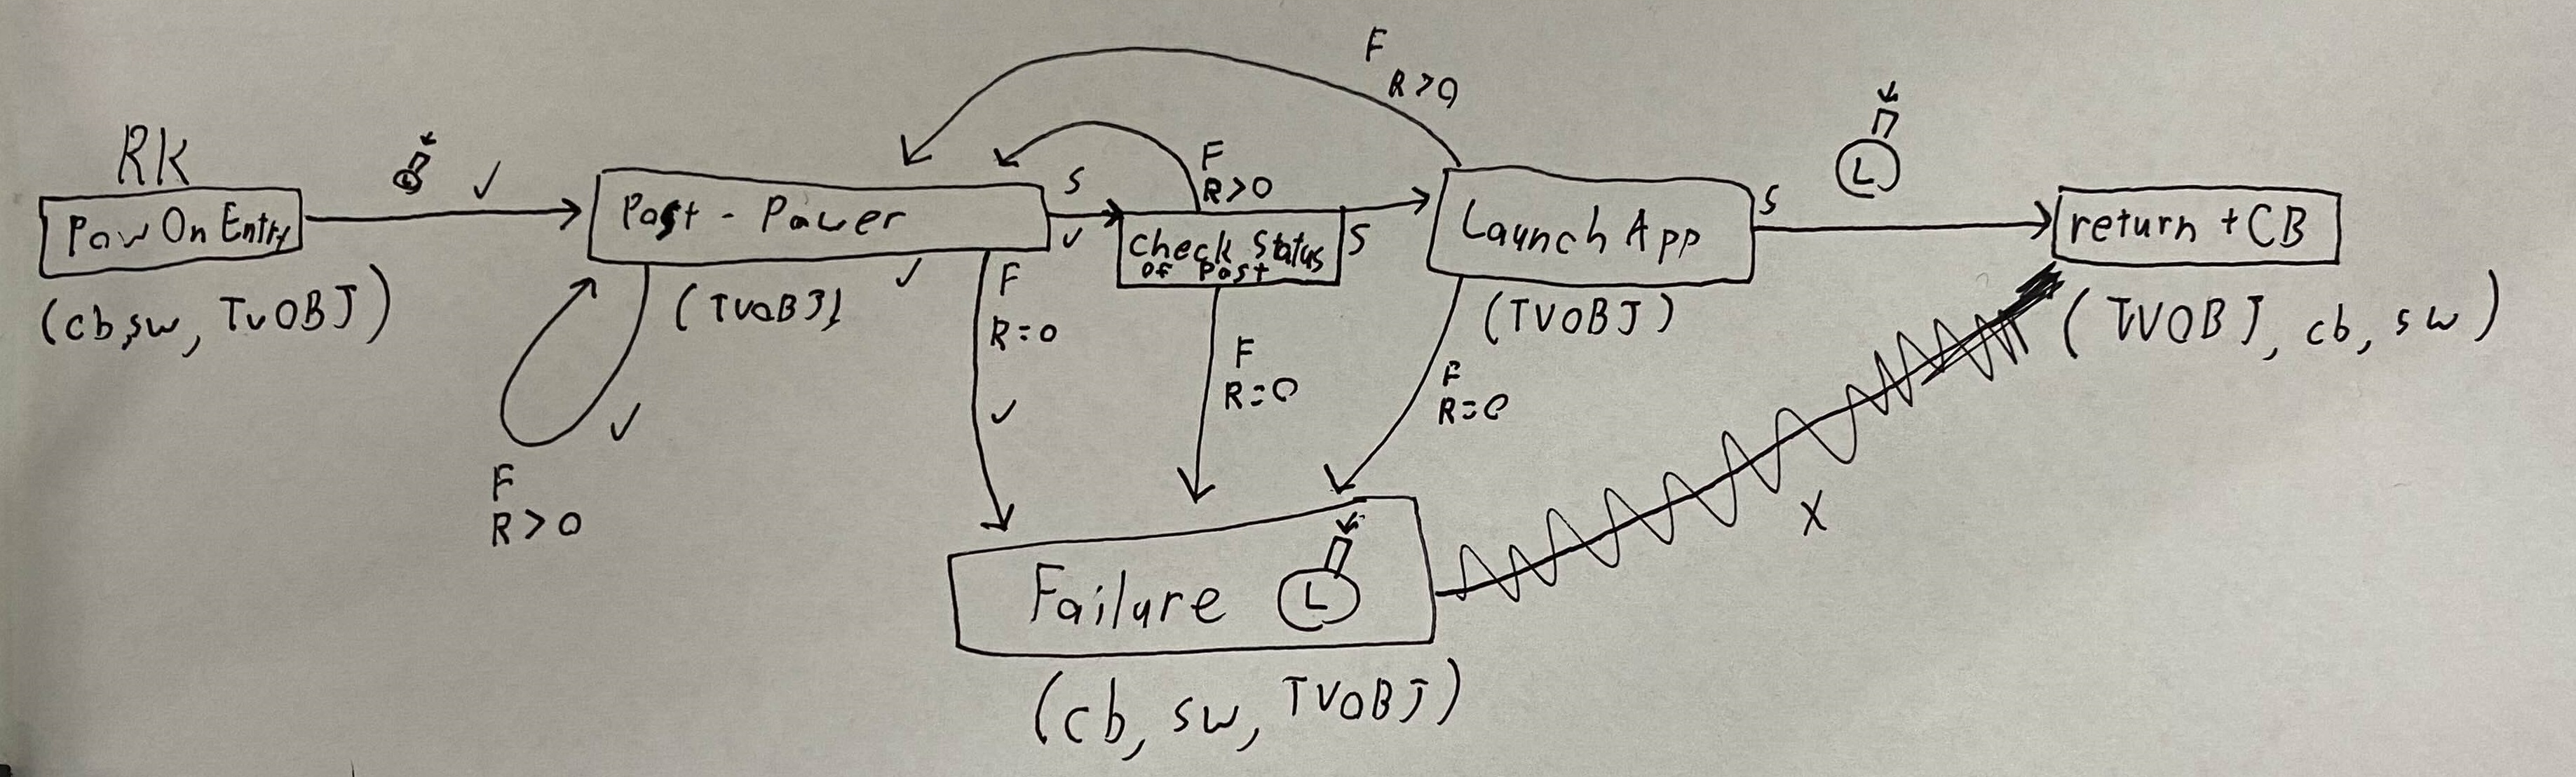 RK
Pow On Entry
(cb,sw, TvOBJ)
✓
Post - Power
(TVOBJ)
✓
✓
F
R>0
S
✓
F
R=0
✓
F
R>0
Check Status
Of Post
S
F
R=0
F
R>0
Launch App
(TVOBJ)
F
R=0
S
L
return + CB
(TVOBJ, cb, sw)
X
Failure L
(cb, sw, TVOBJ)